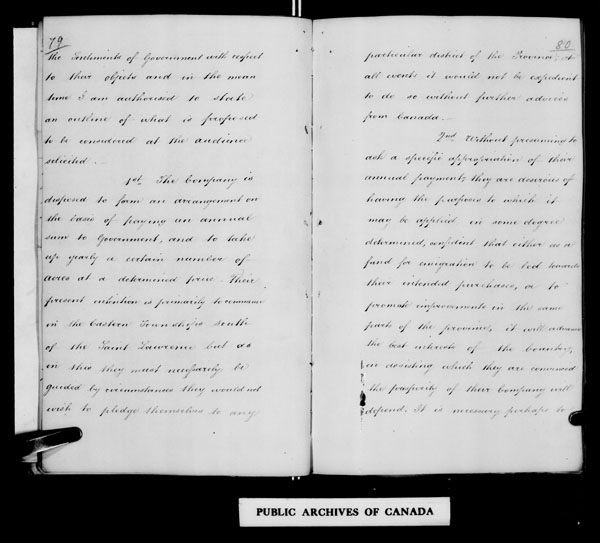 79
the Sentiments of Government with respect
to their objects and in the mean
time I am authorised to state
an outline of what is proposed
to be considered at the audience
solicited.
1st. The Company is
disposed to form an arrangement on
the basis of paying an annual
sum to Government, and to take
up yearly a certain number of
acres at a determined price. Their
present intention is primarily to commence
in the Eastern Townships south
of the Saint Lawrence but as
in this they must necessarily be
guided by circumstances they would not
wish to pledge themselves to any
80
particular district of the Province, at
all events it would not be expedient
to do so without further advices
from Canada.
2nd Without presuming to
ask a specific appropriation of their
annual payments they are desirous of
having the purposes to which it
may be applied in some degree
determined, confident that either as a
fund for emigration to be led towards
their intended purchases, or to
promote improvements in the same
parts of the province, it will advance
the best interests of the Country,
in assisting which they are convinced
the prosperity of their Company will
depend. It is necessary perhaps to
PUBLIC ARCHIVES OF CANADA